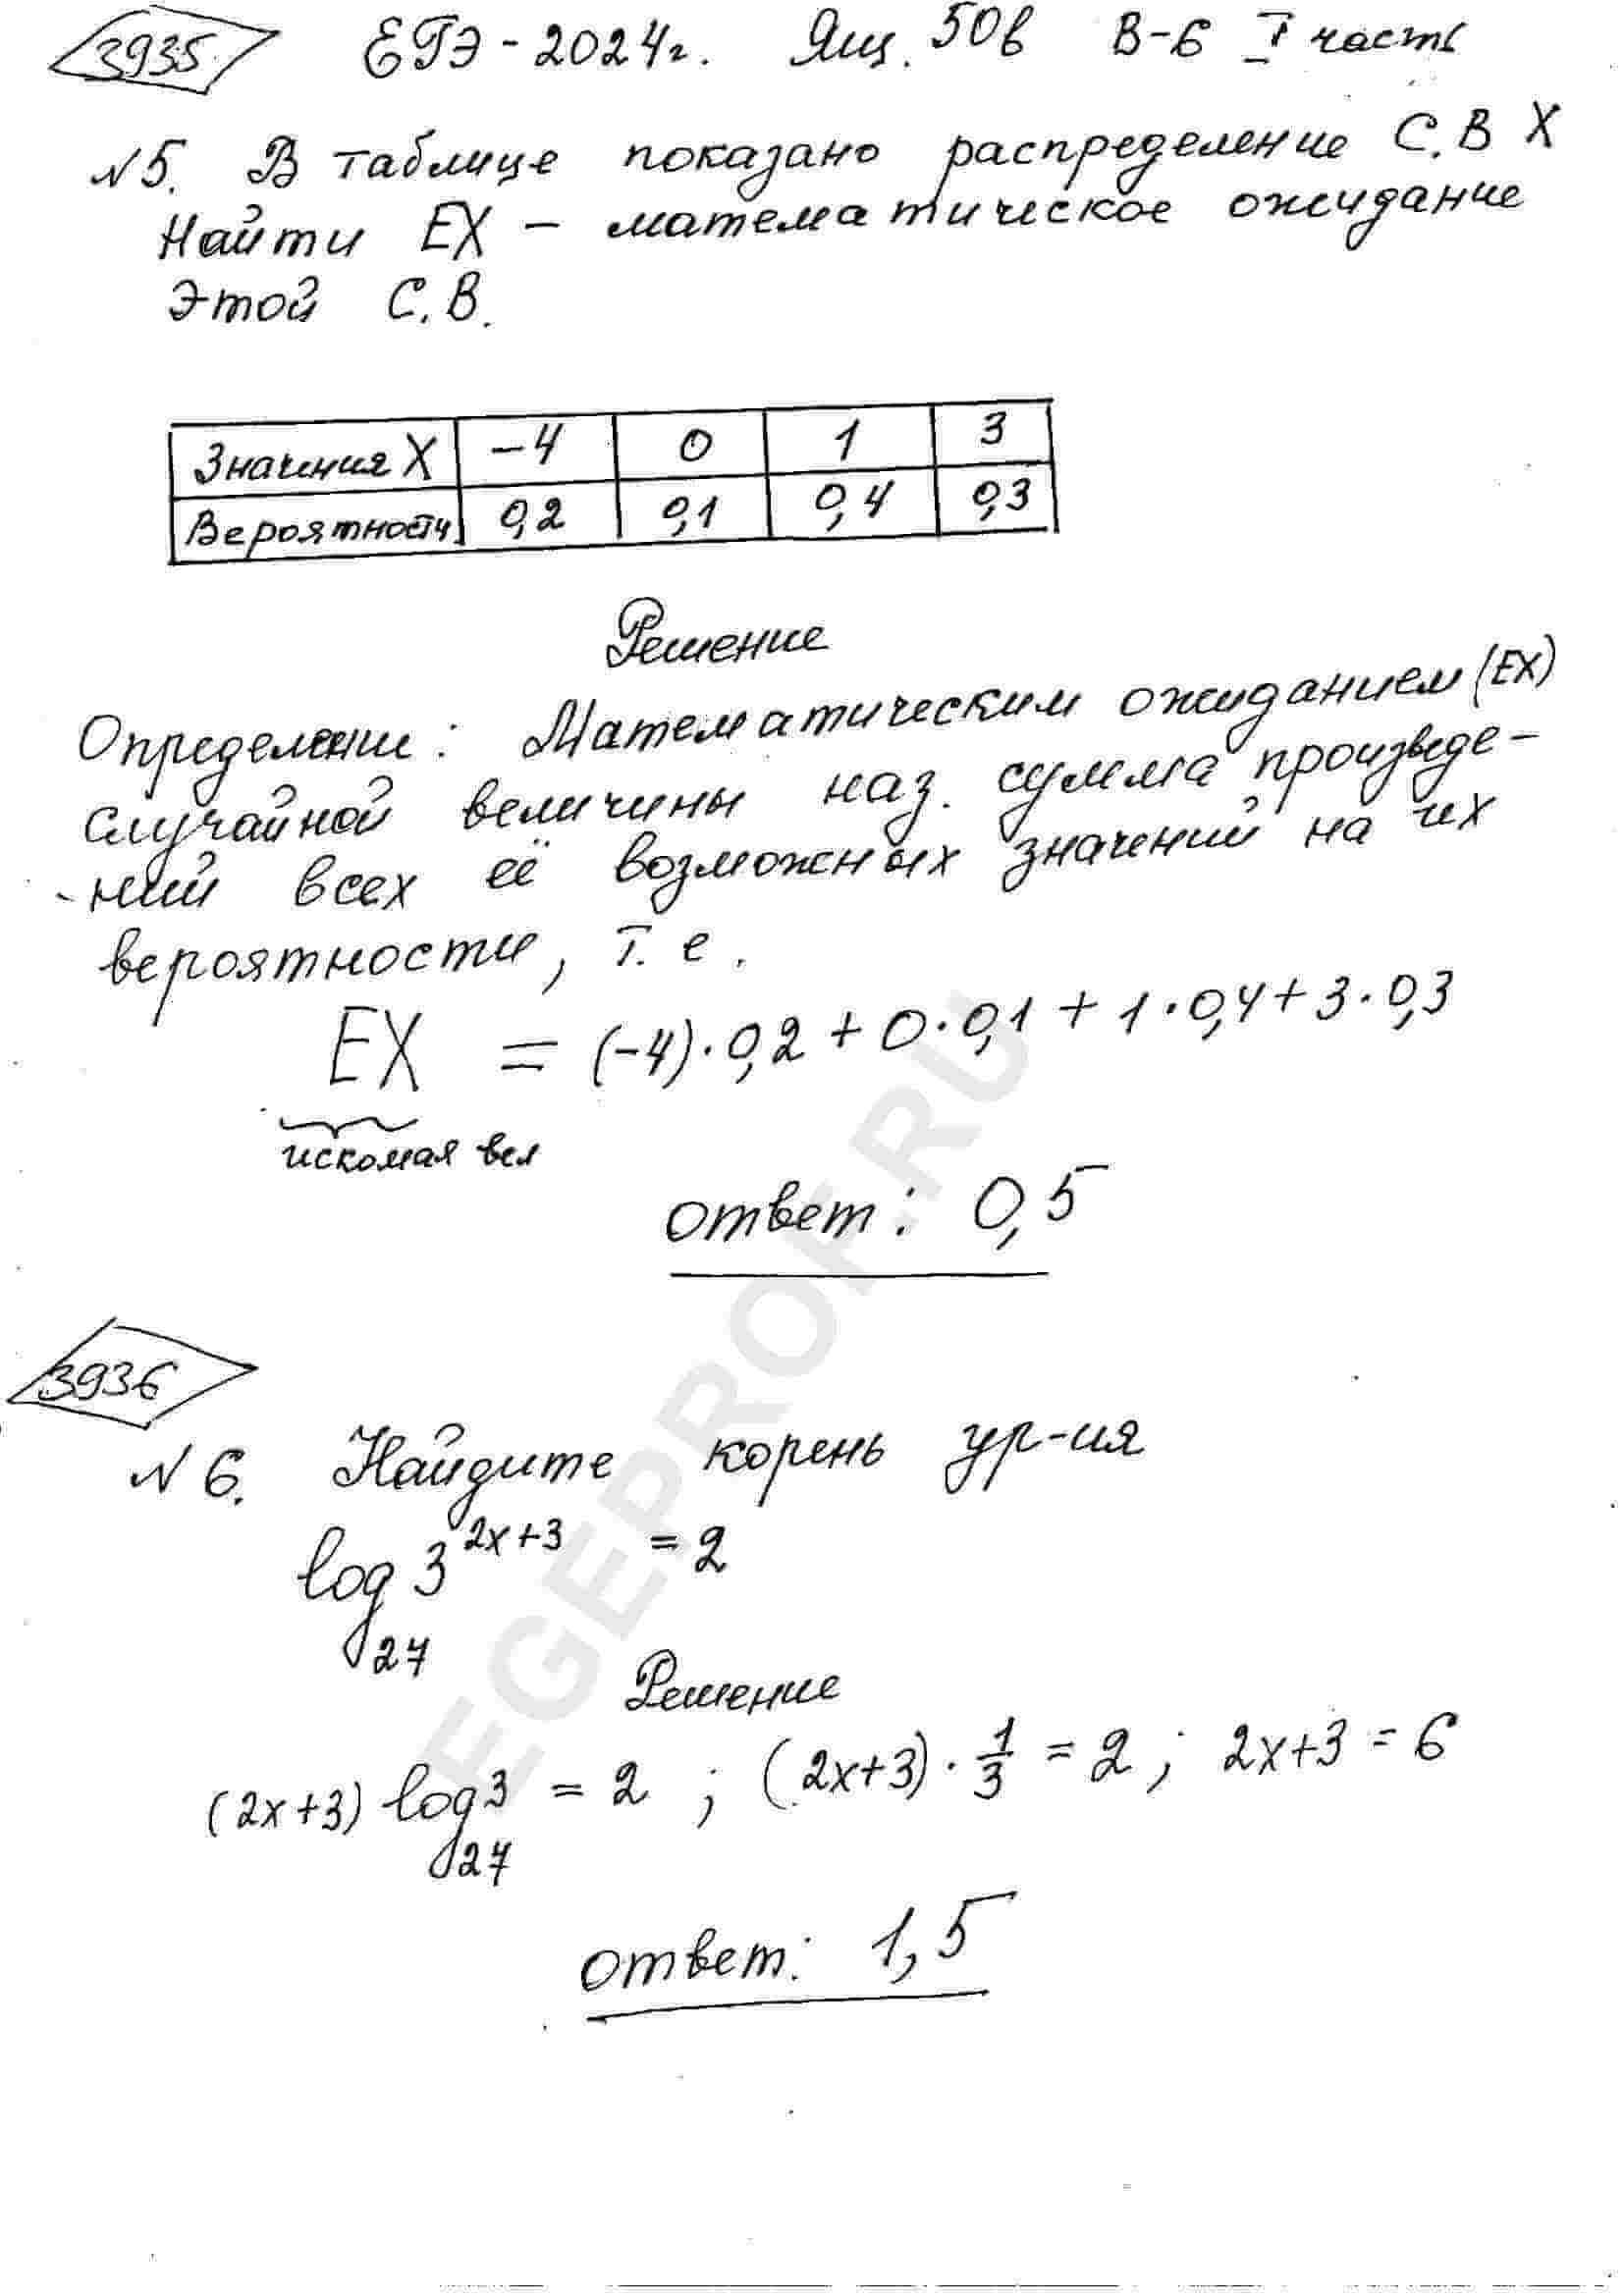 3935 ЕГЭ - 2024г. Ящ. 50в В-6 I часть
№5. В таблице показано распределение С.В X
Найти EX – математическое ожидание
этой С.В.
Значения X -4 0 1 3
Вероятности 0,2 0,1 0,4 0,3
Решение
Определение: Математическим ожиданием (EX)
случайной величины наз. сумма произведе-
-ний всех её возможных значений на их
вероятности, т.е.
EX = (-4)·0,2 + 0·0,1 + 1·0,4 + 3·0,3
искомая вел
ответ: 0,5
3936
№6. Найдите корень ур-ия
log₂₇ 3^(2x+3) = 2
Решение
(2x+3) log₂₇ 3 = 2 ; (2x+3)·1/3 = 2 ; 2x+3 = 6
ответ: 1,5
EGEPROF.RU